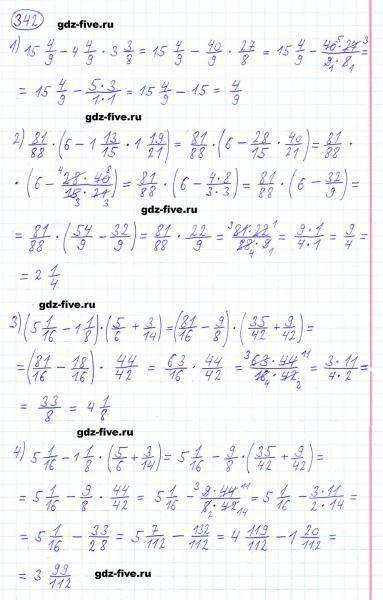 342
gdz-five.ru
1) 15 4/9 - 4 4/9 · 3 3/8 = 15 4/9 - 40/9 · 27/8 = 15 4/9 - 40 5 · 27 3 / 9 1 · 8 1 =
= 15 4/9 - 5·3/1·1 = 15 4/9 - 15 = 4/9
gdz-five.ru
2) 81/88 · (6 - 1 13/15 · 1 19/21) = 81/88 · (6 - 28/15 · 40/21) = 81/88 ·
· (6 - 4 28 · 40 8 / 15 3 · 21 3) = 81/88 · (6 - 4·8/3·3) = 81/88 · (6 - 32/9) =
gdz-five.ru
= 81/88 · (54/9 - 32/9) = 81/88 · 22/9 = 9 81 · 22 1 / 88 4 · 9 1 = 9·1/4·1 = 9/4 =
= 2 1/4
gdz-five.ru
gdz-five.ru
3) (5 1/16 - 1 1/8) · (5/6 + 3/14) = (81/16 - 9/8) · (35/42 + 9/42) =
= (81/16 - 18/16) · 44/42 = 63/16 · 44/42 = 3 63 · 44 11 / 16 4 · 42 2 = 3·11/4·2 =
= 33/8 = 4 1/8
gdz-five.ru
4) 5 1/16 - 1 1/8 · (5/6 + 3/14) = 5 1/16 - 9/8 · (35/42 + 9/42) =
= 5 1/16 - 9/8 · 44/42 = 5 1/16 - 3 9 · 44 11 / 8 2 · 42 14 = 5 1/16 - 3·11/2·14 =
= 5 1/16 - 33/28 = 5 7/112 - 132/112 = 4 119/112 - 1 20/112 =
= 3 99/112
gdz-five.ru